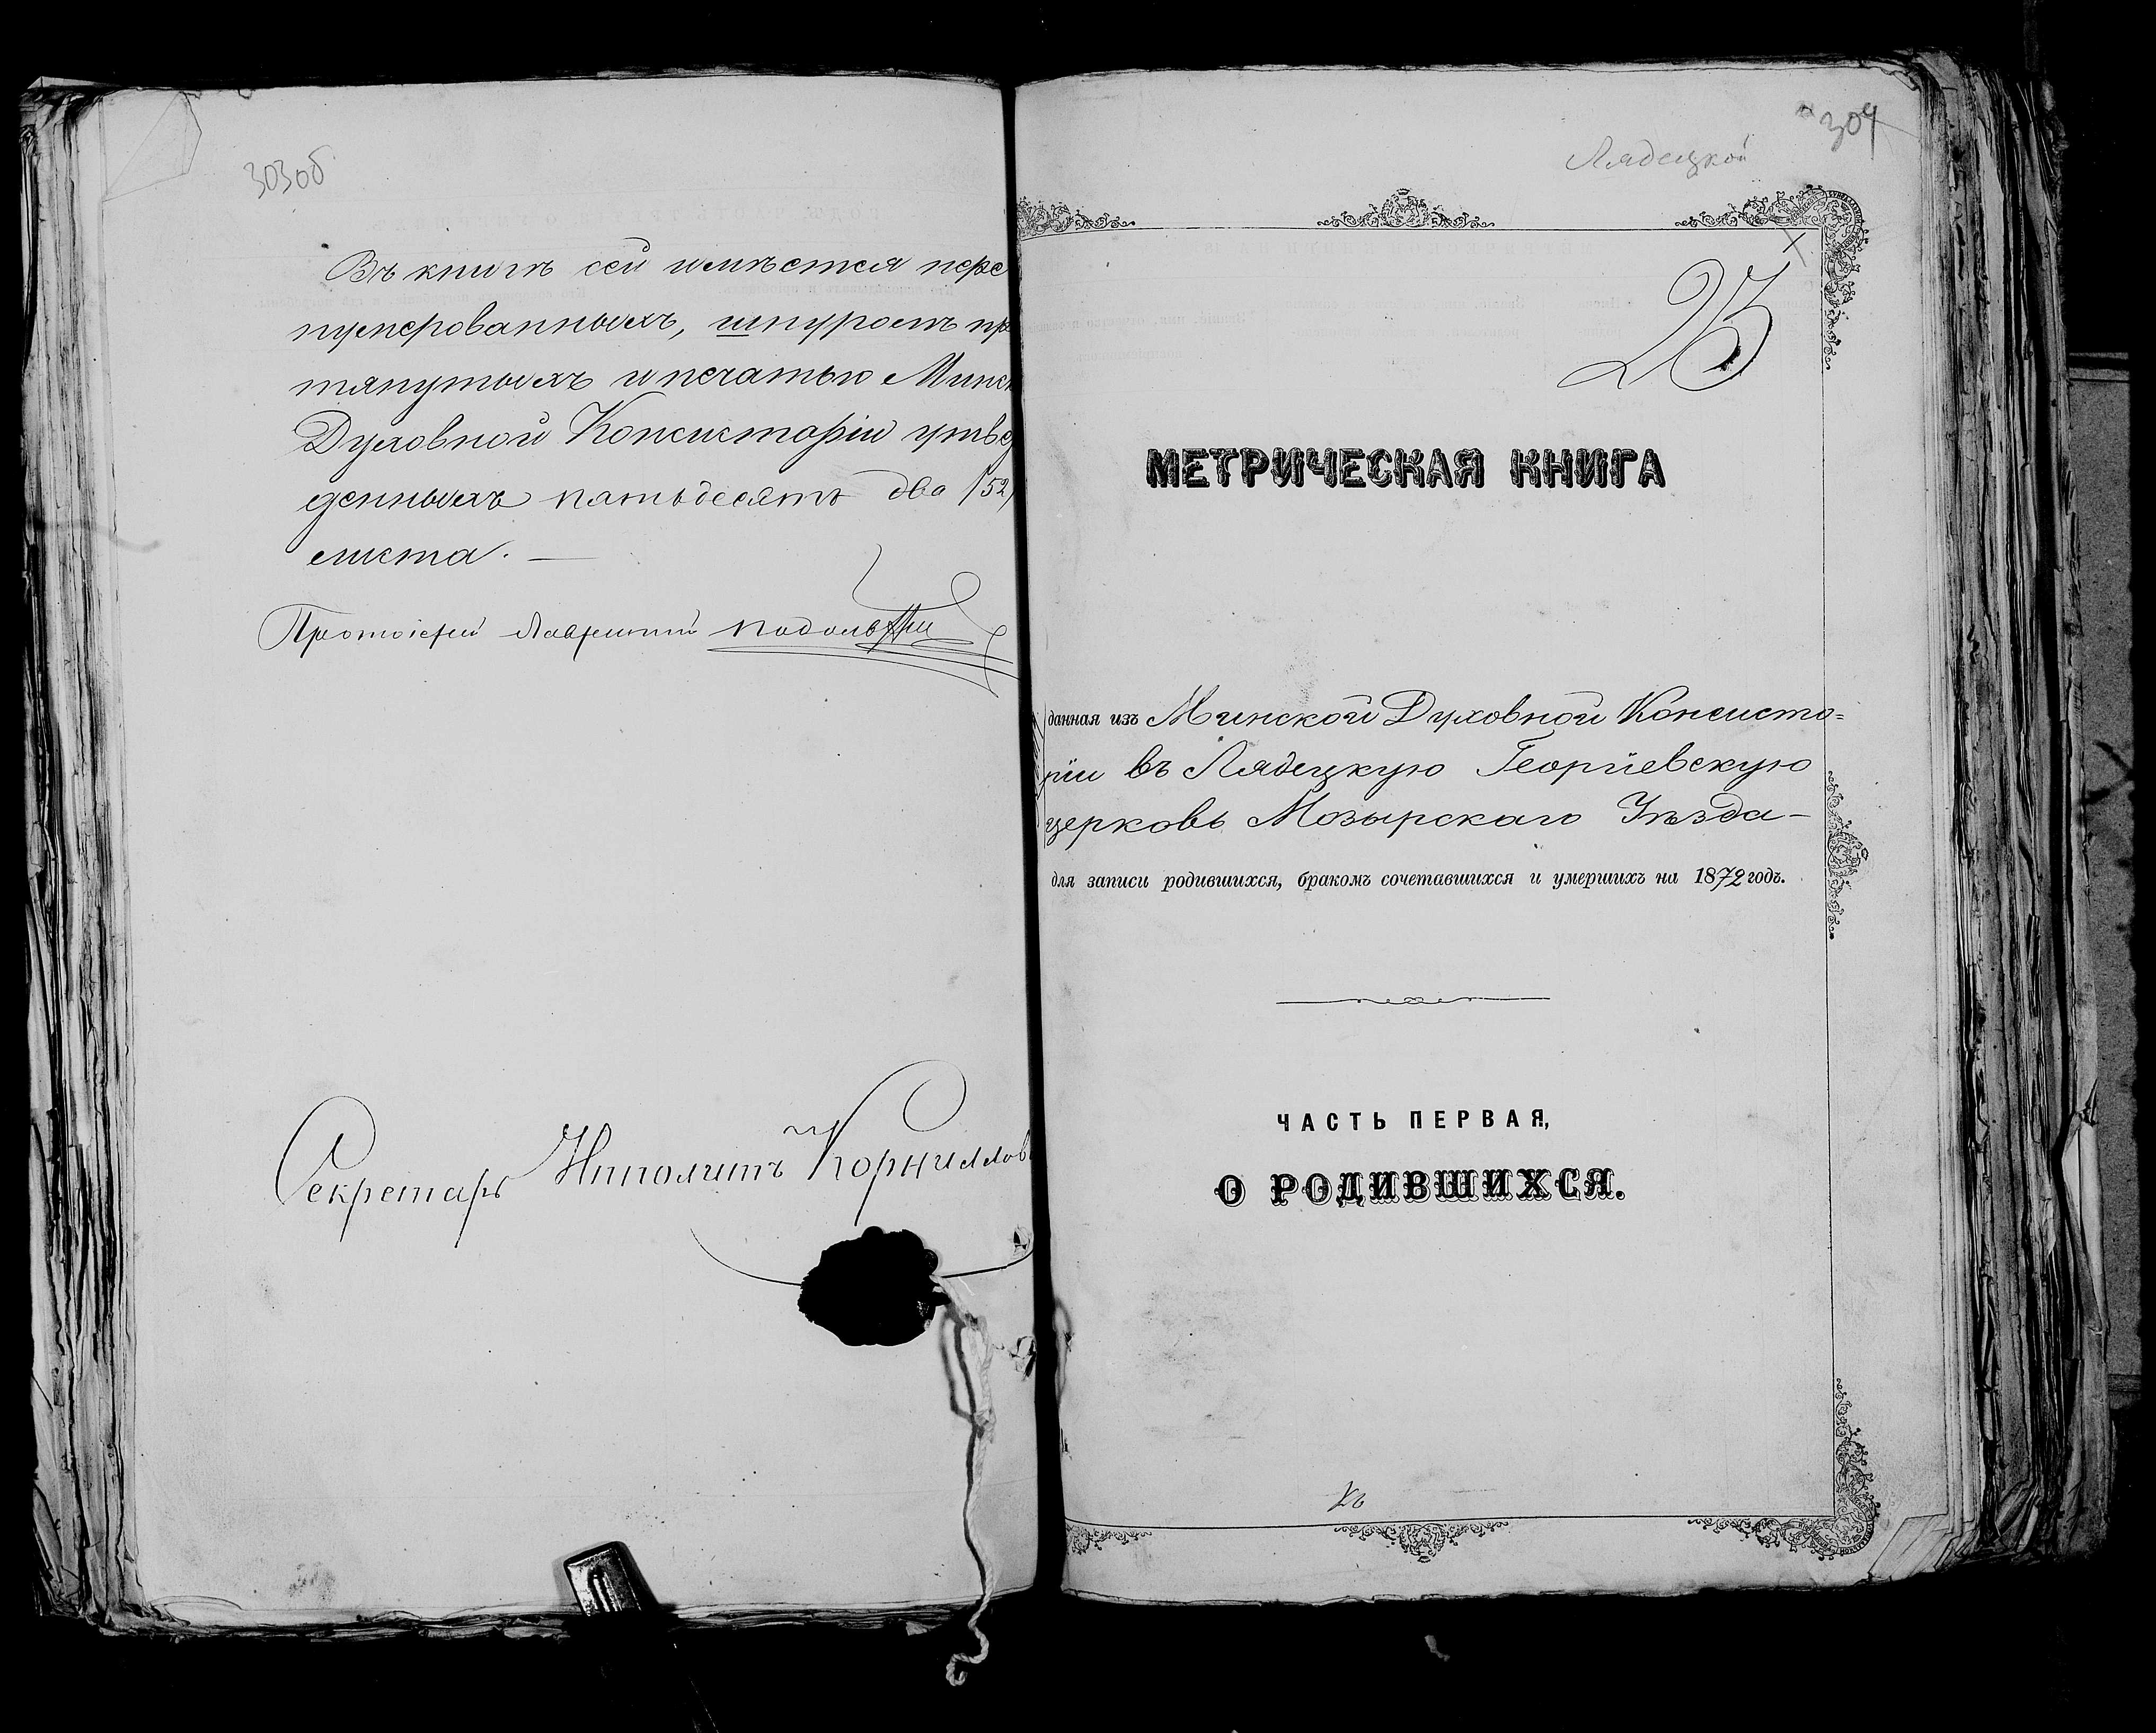 303об
Въ книгѣ сей имѣется пере
нумерованныхъ, шнуромъ пр
тянутыхъ и печатью Минск
Духовной Консисторіи утвер
денныхъ пятьдесятъ два /52/
листа. —
Протоіерей Лаврентій
Секретарь Ипполитъ Корнилов
304
Лядецкой
МЕТРИЧЕСКАЯ КНИГА
данная изъ Минской Духовной Консисто=
ріи въ Лядецкую Георгіевскую
церковь Мозырскаго Уѣзда —
для записи родившихся, бракомъ сочетавшихся и умершихъ на 1872 годъ.
ЧАСТЬ ПЕРВАЯ,
О РОДИВШИХСЯ.